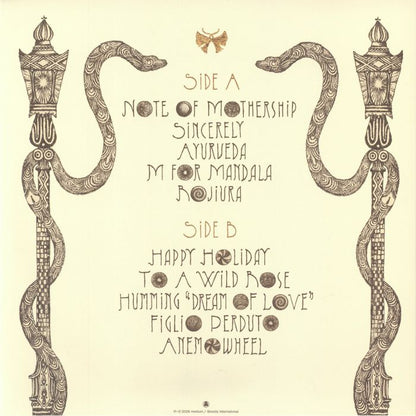 SIDE A
NOTE OF MOTHERSHIP
SINCERELY
AYURVEDA
M FOR MANDALA
ROJIURA
SIDE B
HAPPY HOLIDAY
TO A WILD ROSE
HUMMING "DREAM OF LOVE"
FIGLIO PERDUTO
ANEMOWHEEL